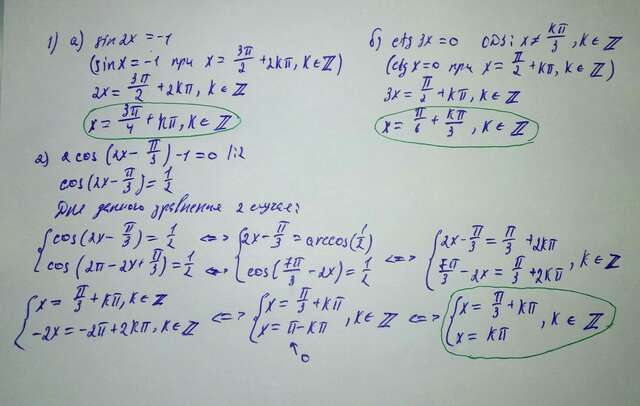 1) а) sin2x = -1
(sinx = -1 при x = 3π/2 + 2kπ, k∈ℤ)
2x = 3π/2 + 2kπ, k∈ℤ
x = 3π/4 + kπ, k∈ℤ
б) ctg 3x = 0 ODS: x ≠ kπ/3, k∈ℤ
(ctg x = 0 при x = π/2 + kπ, k∈ℤ)
3x = π/2 + kπ, k∈ℤ
x = π/6 + kπ/3, k∈ℤ
2) 2cos(2x - π/3) - 1 = 0 |:2
cos(2x - π/3) = 1/2
Для данного уравнения 2 случая:
{cos(2x - π/3) = 1/2 <=> {2x - π/3 = arccos(1/2) <=> {2x - π/3 = π/3 + 2kπ
{cos(2π - 2x + π/3) = 1/2 <=> {cos(7π/3 - 2x) = 1/2 {7π/3 - 2x = π/3 + 2kπ, k∈ℤ
{x = π/3 + kπ, k∈ℤ <=> {x = π/3 + kπ <=> {x = π/3 + kπ
{-2x = -2π + 2kπ, k∈ℤ {x = π - kπ, k∈ℤ {x = kπ, k∈ℤ
0